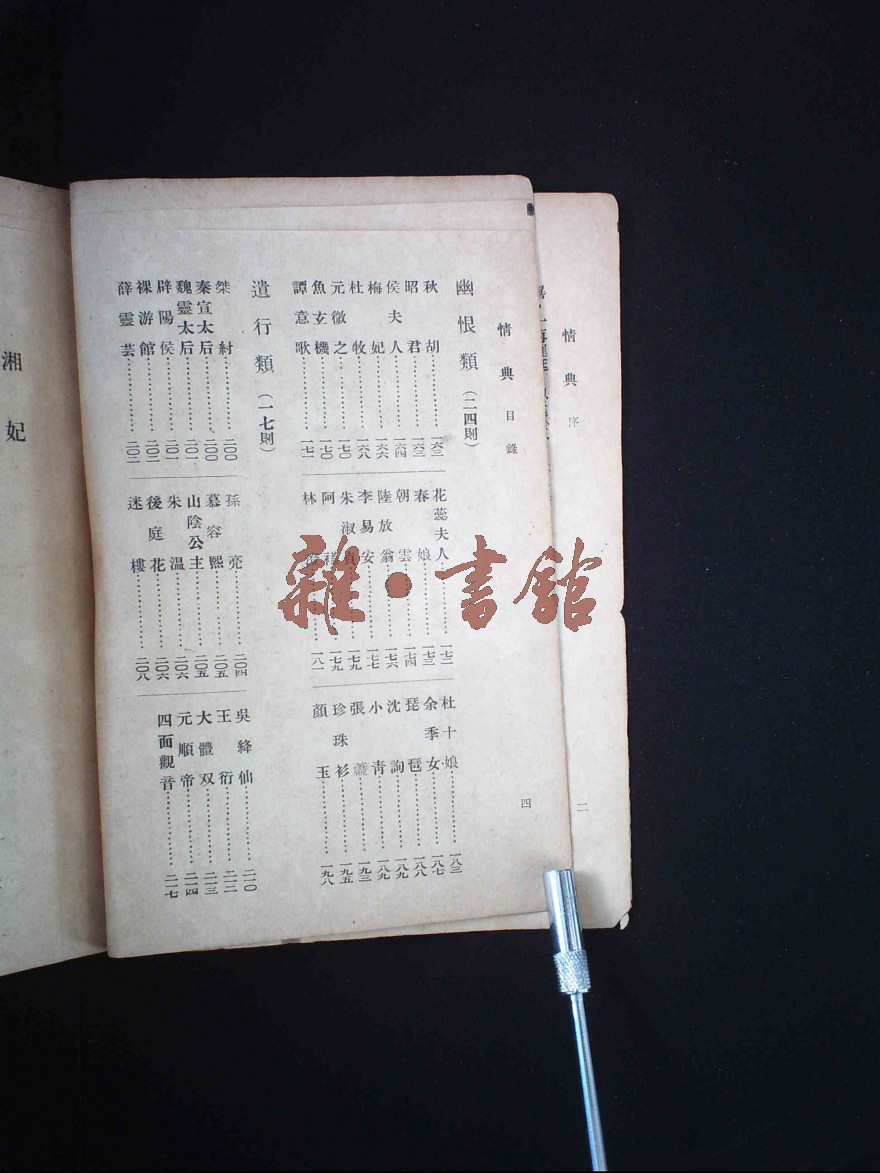 情典序
二
情典目錄
四
幽恨類（二四則）
秋胡……一六三
昭君……一六三
侯夫人……一六四
梅妃……一六六
杜牧……一六八
元微之……一七〇
魚玄機……一七〇
譚意歌……一七一
花蕊夫人……一七二
春娘……一七三
朝雲……一七四
陸放翁……一七六
李易安……一七七
朱淑真……一七九
阿……一七九
林……一八一
杜十娘……一八三
余季女……一八七
琵琶……一八八
沈詢……一八九
小青……一八九
張……一九三
珍珠衫……一九五
顏玉……一九八
遺行類（一七則）
桀紂……二〇〇
秦宣太后……二〇〇
魏靈太后……二〇一
辟陽侯……二〇一
裸游館……二〇二
薛靈芸……二〇二
孫亮……二〇四
慕容熙……二〇五
山陰公主……二〇五
朱溫……二〇六
後庭花……二〇六
迷樓……二〇八
吳絳仙……二一〇
王衍……二一二
大體双……二一三
元順帝……二一四
四面觀音……二一七
湘妃
雜·書館